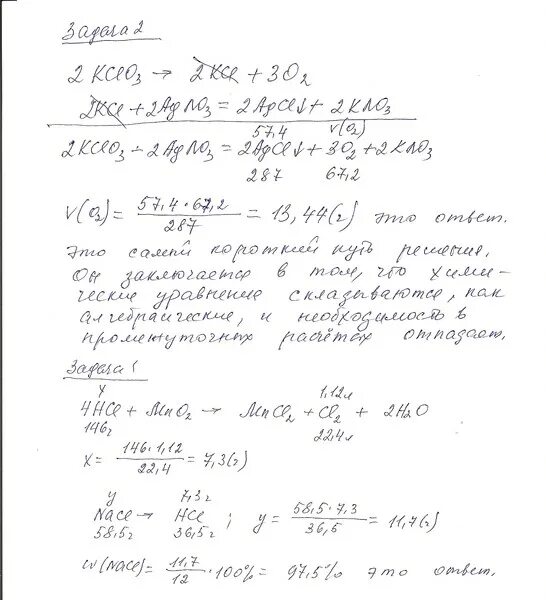 Задача 2
2 KClO₃ → 2KCl + 3O₂
2KCl + 2AgNO₃ = 2AgCl↓ + 2KNO₃
57,4 V(O₂)
2KClO₃ – 2AgNO₃ = 2AgCl↓ + 3O₂ + 2KNO₃
287 67,2
V(O₂) = 57,4·67,2 / 287 = 13,44(г) это ответ.
Это самый короткий путь решения.
Он заключается в том, что хими-
ческие уравнение складываются, как
алгебраические, и необходимость в
промежуточных расчётах отпадает.
Задача 1
x 1,12л
4HCl + MnO₂ → MnCl₂ + Cl₂ + 2H₂O
146г 22,4л
x = 146·1,12 / 22,4 = 7,3(г)
y 7,3г
NaCl → HCl ; y = 58,5·7,3 / 36,5 = 11,7(г)
58,5г 36,5г
w(NaCl) = 11,7 / 12 · 100% = 97,5% это ответ.